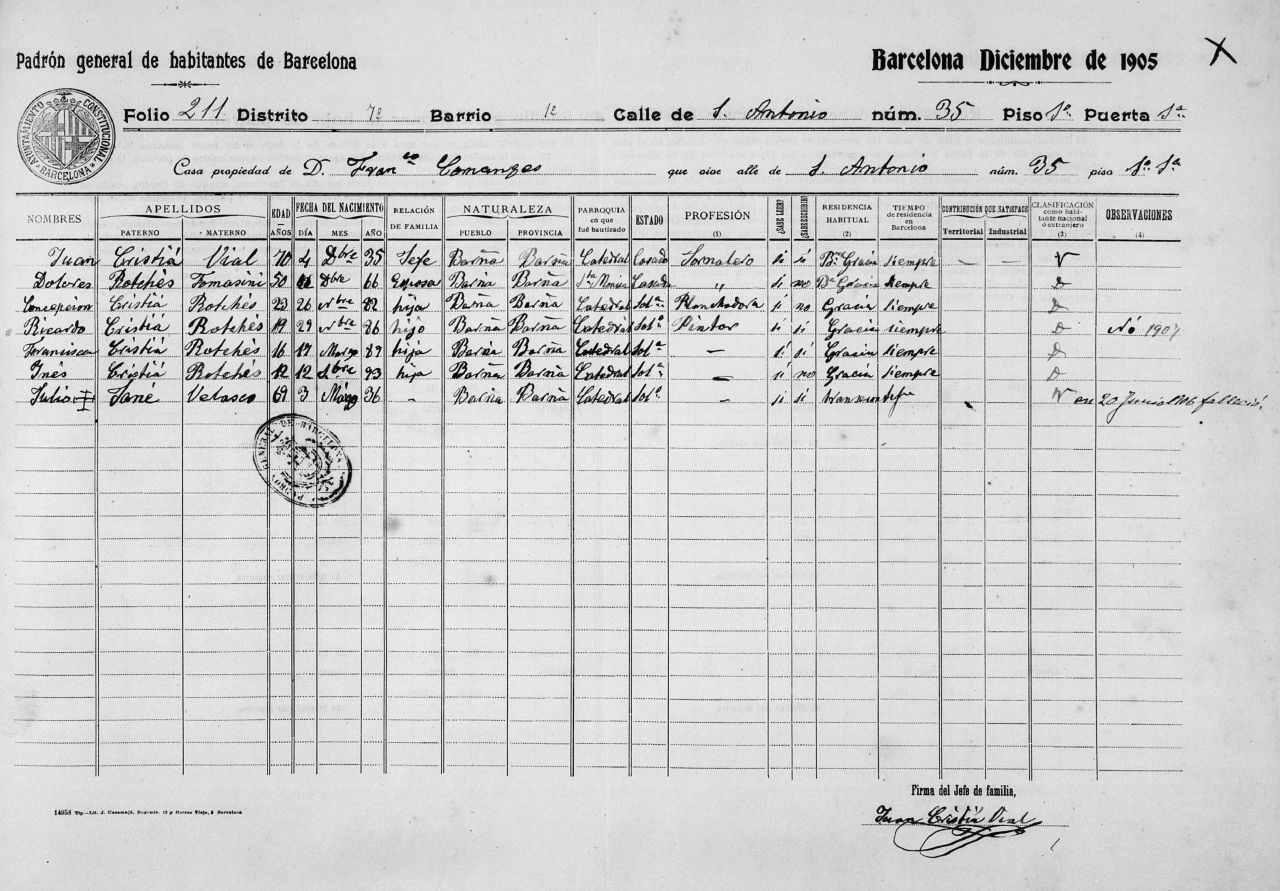 Padrón general de habitantes de Barcelona
Barcelona Diciembre de 1905
X
AYUNTAMIENTO CONSTITUCIONAL BARCELONA
Folio 211 Distrito 7º Barrio 1º Calle de S. Antonio núm. 35 Piso 1º Puerta 1ª
Casa propiedad de D. Franco Comanges que vive calle de S. Antonio núm. 35 piso 1º 1ª
NOMBRES APELLIDOS PATERNO MATERNO EDAD AÑOS FECHA DEL NACIMIENTO DÍA MES AÑO RELACIÓN DE FAMILIA NATURALEZA PUEBLO PROVINCIA PARROQUIA en que fué bautizado ESTADO PROFESIÓN (1) ¿SABE LEER? ¿SABE ESCRIBIR? RESIDENCIA HABITUAL (2) TIEMPO de residencia en Barcelona CONTRIBUCIÓN QUE SATISFACE Territorial Industrial CLASIFICACIÓN como habitante nacional ó extranjero (3) OBSERVACIONES (4)
Juan Cristiá Vial 70 4 Dbre 35 Jefe Barña Barña Catedral Casado Jornalero si si Bª Gracia siempre — — V
Dolores Rotchés Tomasini 50 Dbre 66 Esposa Barña Barña Sta Monica Casada " si no Bª Gracia siempre D
Concepcion Cristiá Rotchés 23 26 Nbre 82 hija Barña Barña Catedral Solª Planchadora si no Gracia siempre D
Ricardo Cristiá Rotchés 19 29 Nbre 86 hijo Barña Barña Catedral Solº Pintor si si Gracia siempre D No 1907
Francisca Cristiá Rotchés 16 17 Marzo 89 hija Barña Barña Catedral Solª — si si Gracia siempre D
Inés Cristiá Rotchés 12 12 93 hija Barña Barña Catedral Solª — si no Gracia siempre D
Julio Jané Velasco 69 3 Marzo 36 — Barña Barña Catedral Solº — si si V en 20 Junio 1906 falleció.
PADRON GENERAL DE BARCELONA
Firma del Jefe de familia,
Juan Cristiá Vial
14958 Tip.—Lit. J. Casamajó, 12 y Correo Viejo, 5 Barcelona